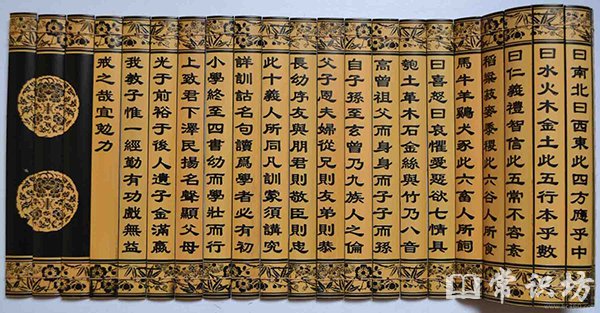 曰南北曰西東此四方應乎中
曰水火木金土此五行本乎數
曰仁義禮智信此五常不容紊
稻粱菽麥黍稷此六谷人所食
馬牛羊鷄犬豕此六畜人所飼
曰喜怒曰哀懼愛惡欲七情具
匏土革木石金絲與竹乃八音
高曾祖父而身身而子子而孫
自子孫至玄曾乃九族人之倫
父子恩夫婦從兄則友弟則恭
長幼序友與朋君則敬臣則忠
此十義人所同凡訓蒙須講究
詳訓詁名句讀爲學者必有初
小學終至四書幼而學壯而行
上致君下澤民揚名聲顯父母
光于前裕于後人遺子金滿嬴
我教子惟一經勤有功戲無益
戒之哉宜勉力
常识坊